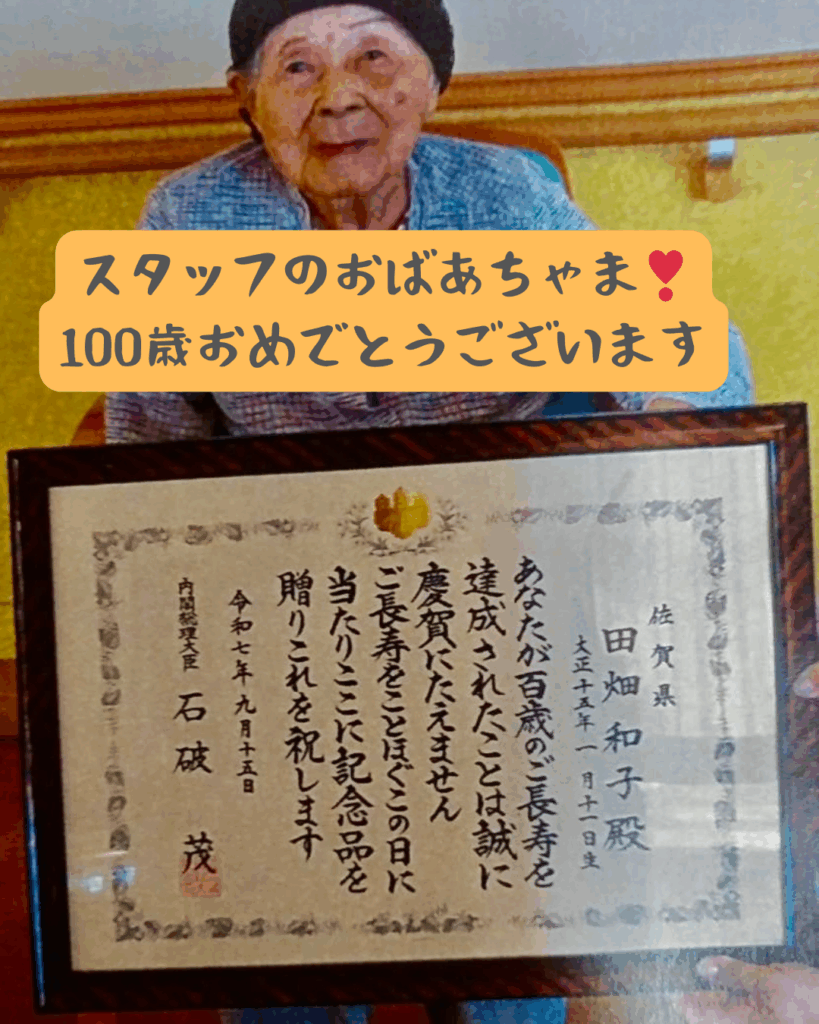 スタッフのおばあちゃま❣
100歳おめでとうございます
佐賀県
田畑和子殿
大正十五年一月十一日生
あなたが百歳のご長寿を
達成されたことは誠に
慶賀にたえません
ご長寿をことほぐこの日に
当たりここに記念品を
贈りこれを祝します
令和七年九月十五日
内閣総理大臣 石破 茂